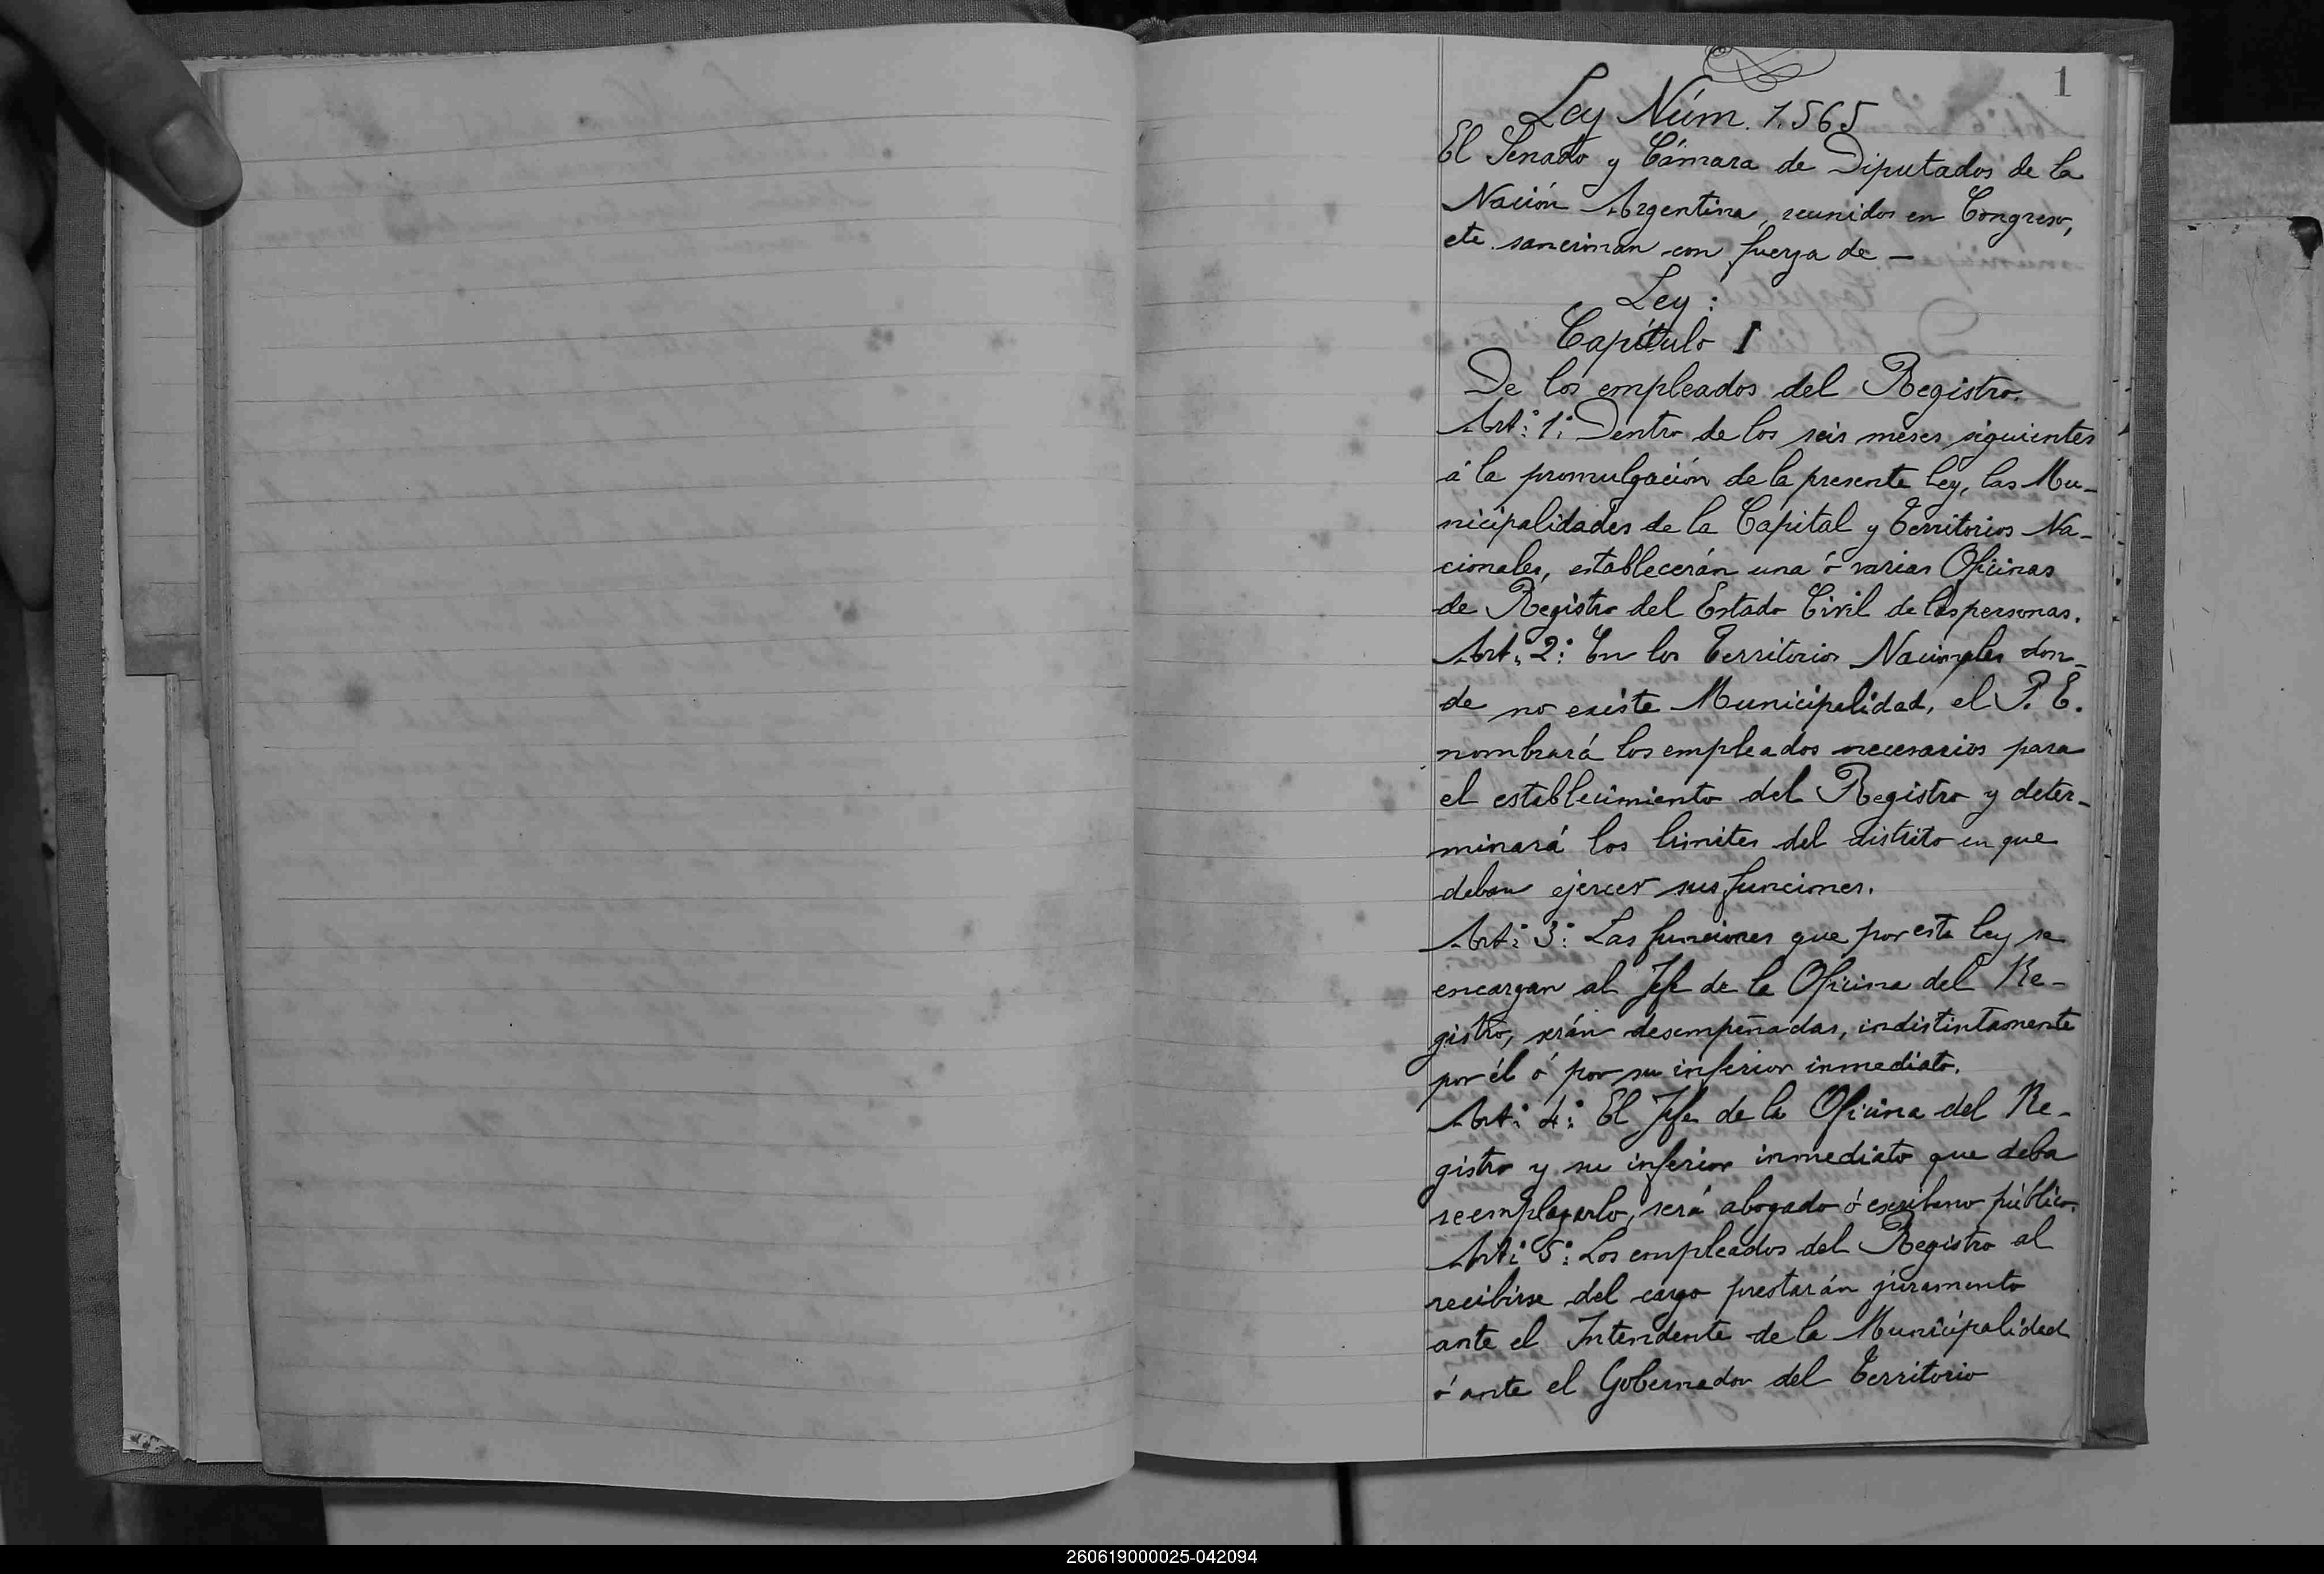 1
Ley Núm. 1.565
El Senado y Cámara de Diputados de la
Nación Argentina, reunidos en Congreso,
etc. sancionan con fuerza de —
Ley:
Capítulo I
De los empleados del Registro.
Art: 1: Dentro de los seis meses siguientes
á la promulgación de la presente ley, las Mu-
nicipalidades de la Capital y Territorios Na-
cionales, establecerán una ó varias Oficinas
de Registro del Estado Civil de las personas.
Art: 2: En los Territorios Nacionales don-
de no existe Municipalidad, el P. E.
nombrará los empleados necesarios para
el establecimiento del Registro y deter-
minará los limites del distrito en que
deban ejercer sus funciones.
Art: 3: Las funciones que por esta ley se
encargan al Jefe de la Oficina del Re-
gistro, serán desempeñadas, indistintamente
por él ó por su inferior inmediato.
Art: 4: El Jefe de la Oficina del Re-
gistro y su inferior inmediato que deba
reemplazarlo, será abogado ó escribano público.
Art: 5: Los empleados del Registro al
recibirse del cargo prestarán juramento
ante el Intendente de la Municipalidad
ó ante el Gobernador del Territorio
260619000025-042094